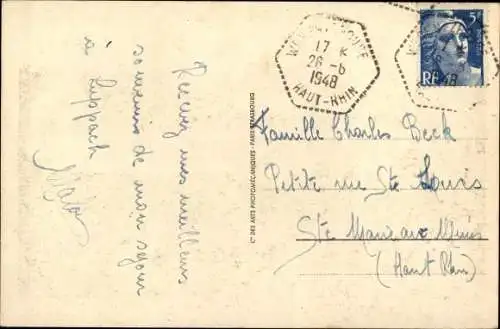 Recevez mes meilleurs
souvenirs de mon séjour
à Luppach
17 K
26 - 6
1948
HAUT-RHIN
5F
RF
Cie DES ARTS PHOTOMÉCANIQUES - PARIS-STRASBOURG
Famille Charles Beck
Petite rue Ste Louis
Ste Marie aux Mines
(Haut Rhin)